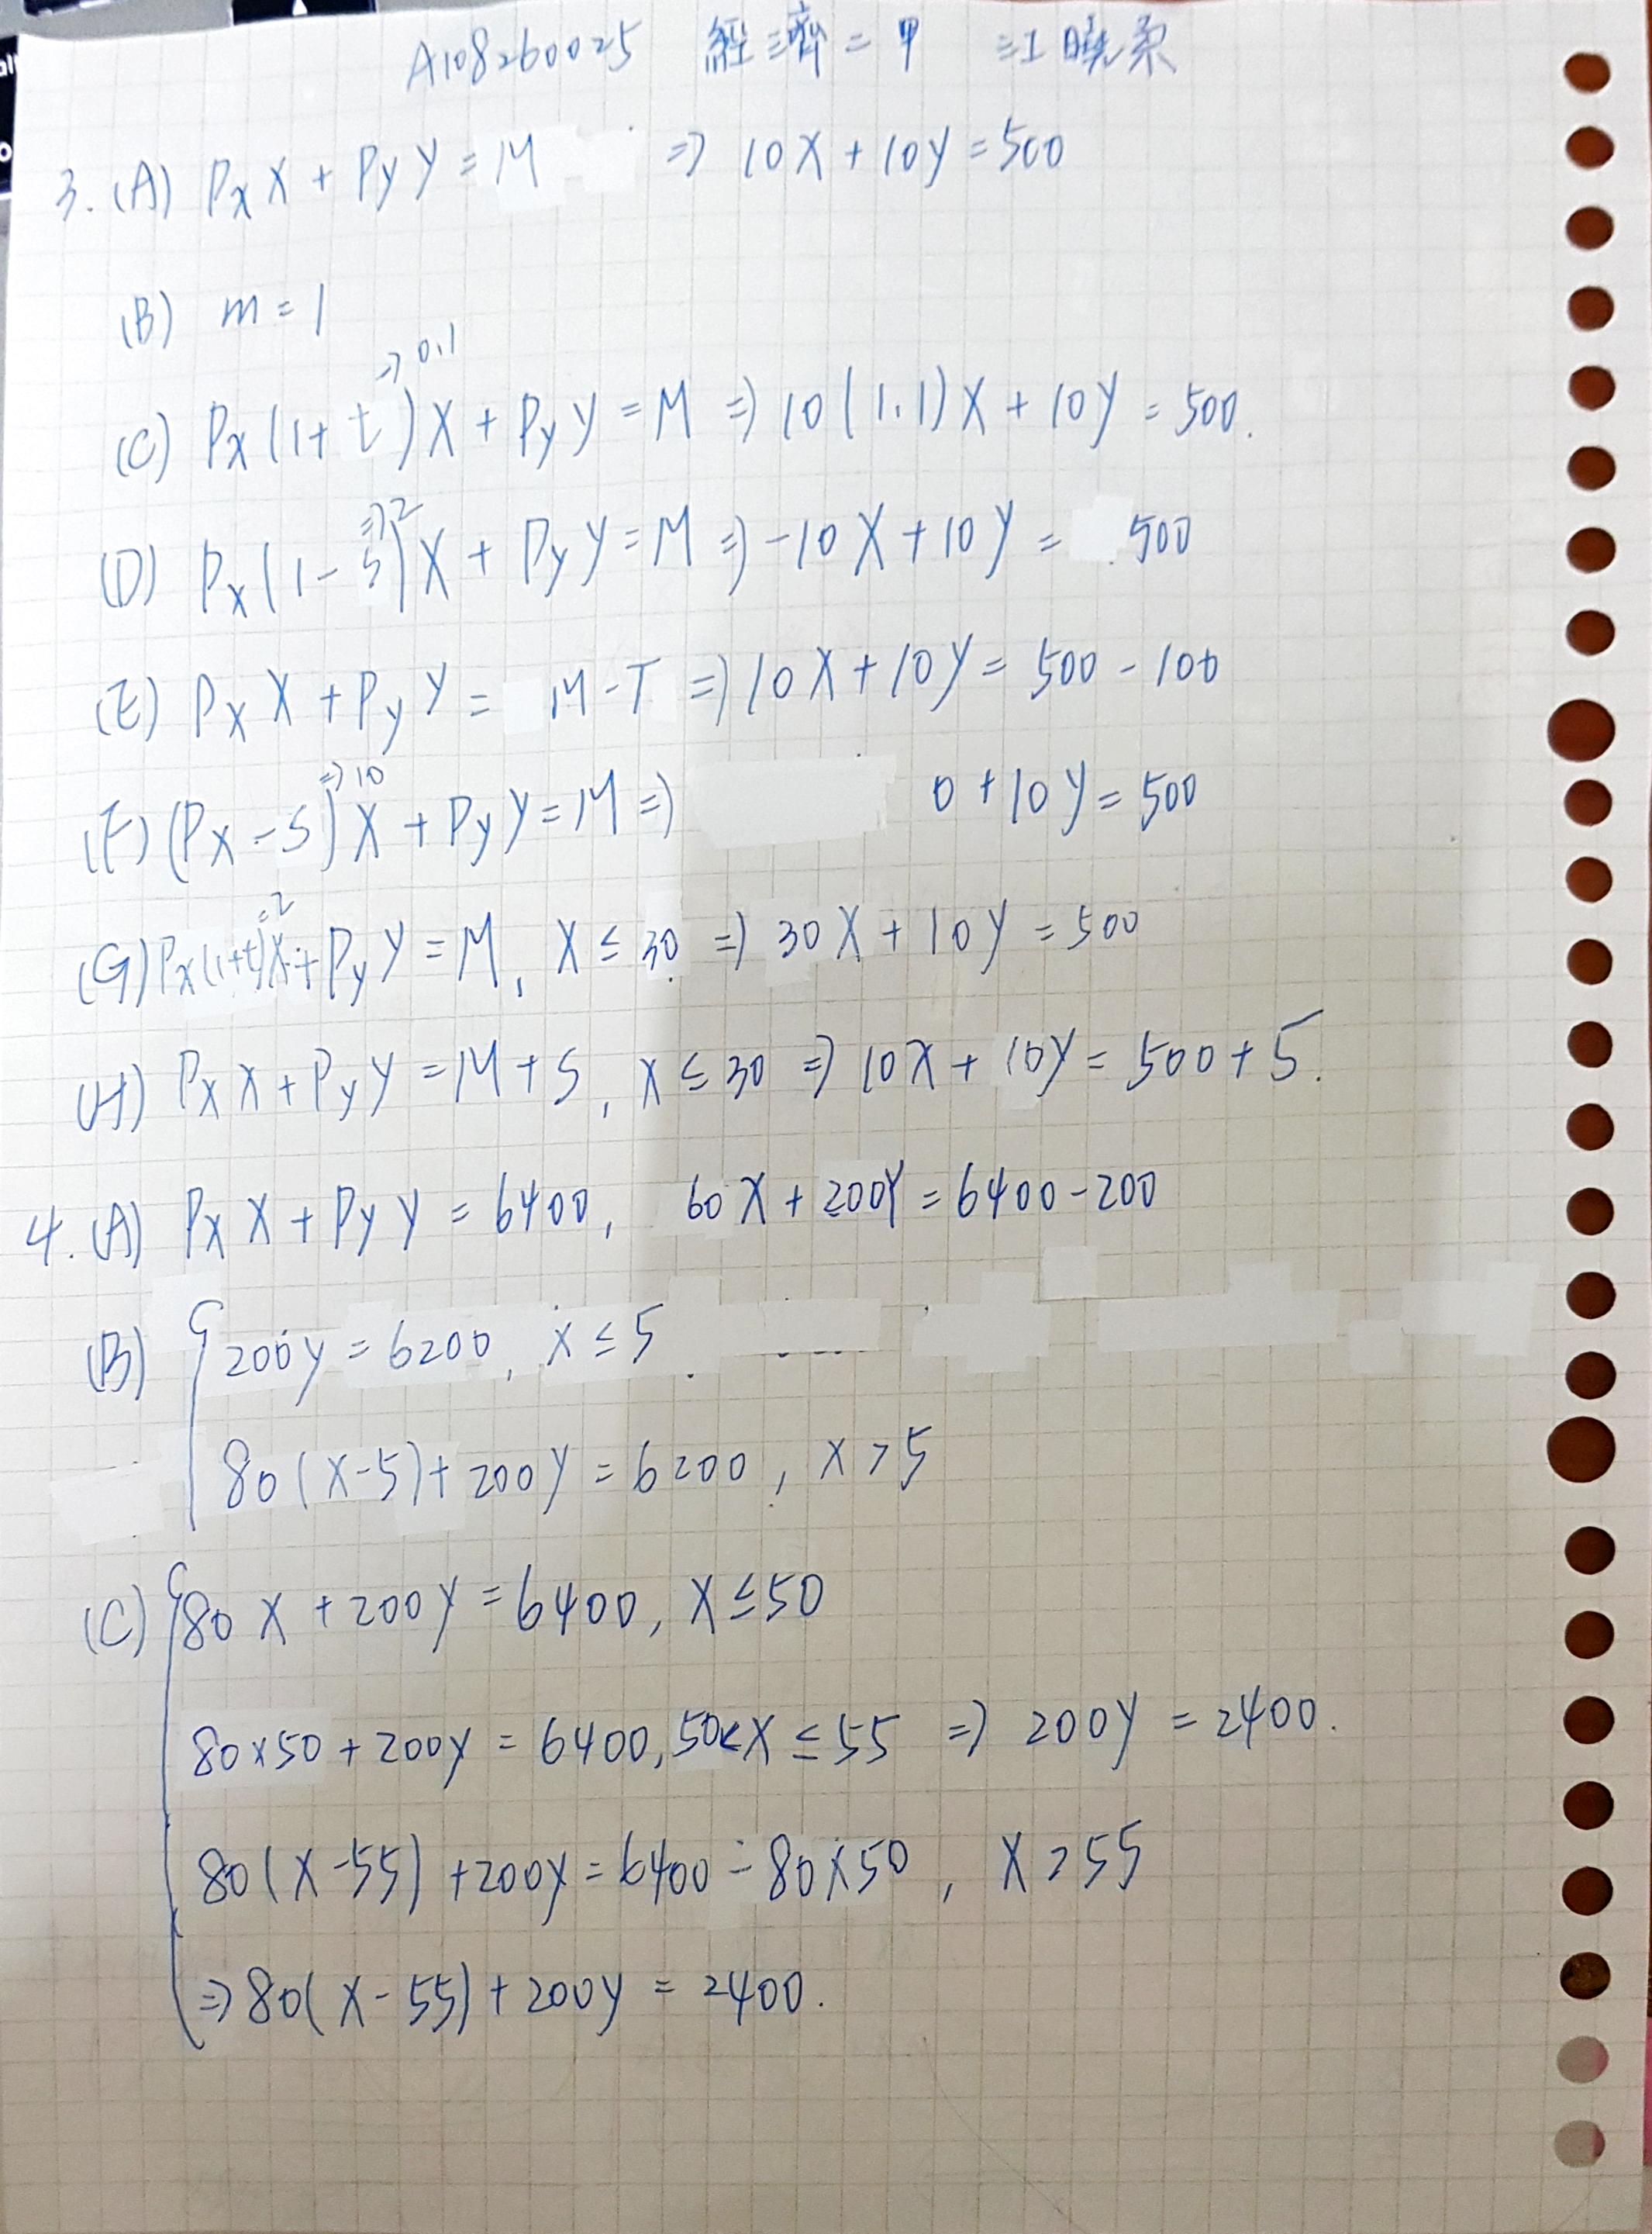 A108260025 經濟二甲 江曉柔
3. (A) PxX + PyY = M ⇒ 10X + 10Y = 500
(B) m = 1
⇒ 0.1
(C) Px(1+t)X + PyY = M ⇒ 10(1.1)X + 10Y = 500.
⇒ 2
(D) Px(1-S)X + PyY = M ⇒ -10X + 10Y = 500
(E) PxX + PyY = M-T ⇒ 10X + 10Y = 500 - 100
⇒ 10
(F) (Px-S)X + PyY = M ⇒ 0 + 10Y = 500
=2
(G) Px(1+t)X + PyY = M, X ≤ 30 ⇒ 30X + 10Y = 500
(H) PxX + PyY = M + S, X ≤ 30 ⇒ 10X + 10Y = 500 + 5.
4. (A) PxX + PyY = 6400, 60X + 200Y = 6400 - 200
(B) { 200Y = 6200, X ≤ 5.
80(X-5) + 200Y = 6200, X > 5
(C) { 80X + 200Y = 6400, X ≤ 50
80×50 + 200Y = 6400, 50<X ≤ 55 ⇒ 200Y = 2400.
80(X-55) + 200Y = 6400 - 80×50, X > 55
⇒ 80(X-55) + 200Y = 2400.